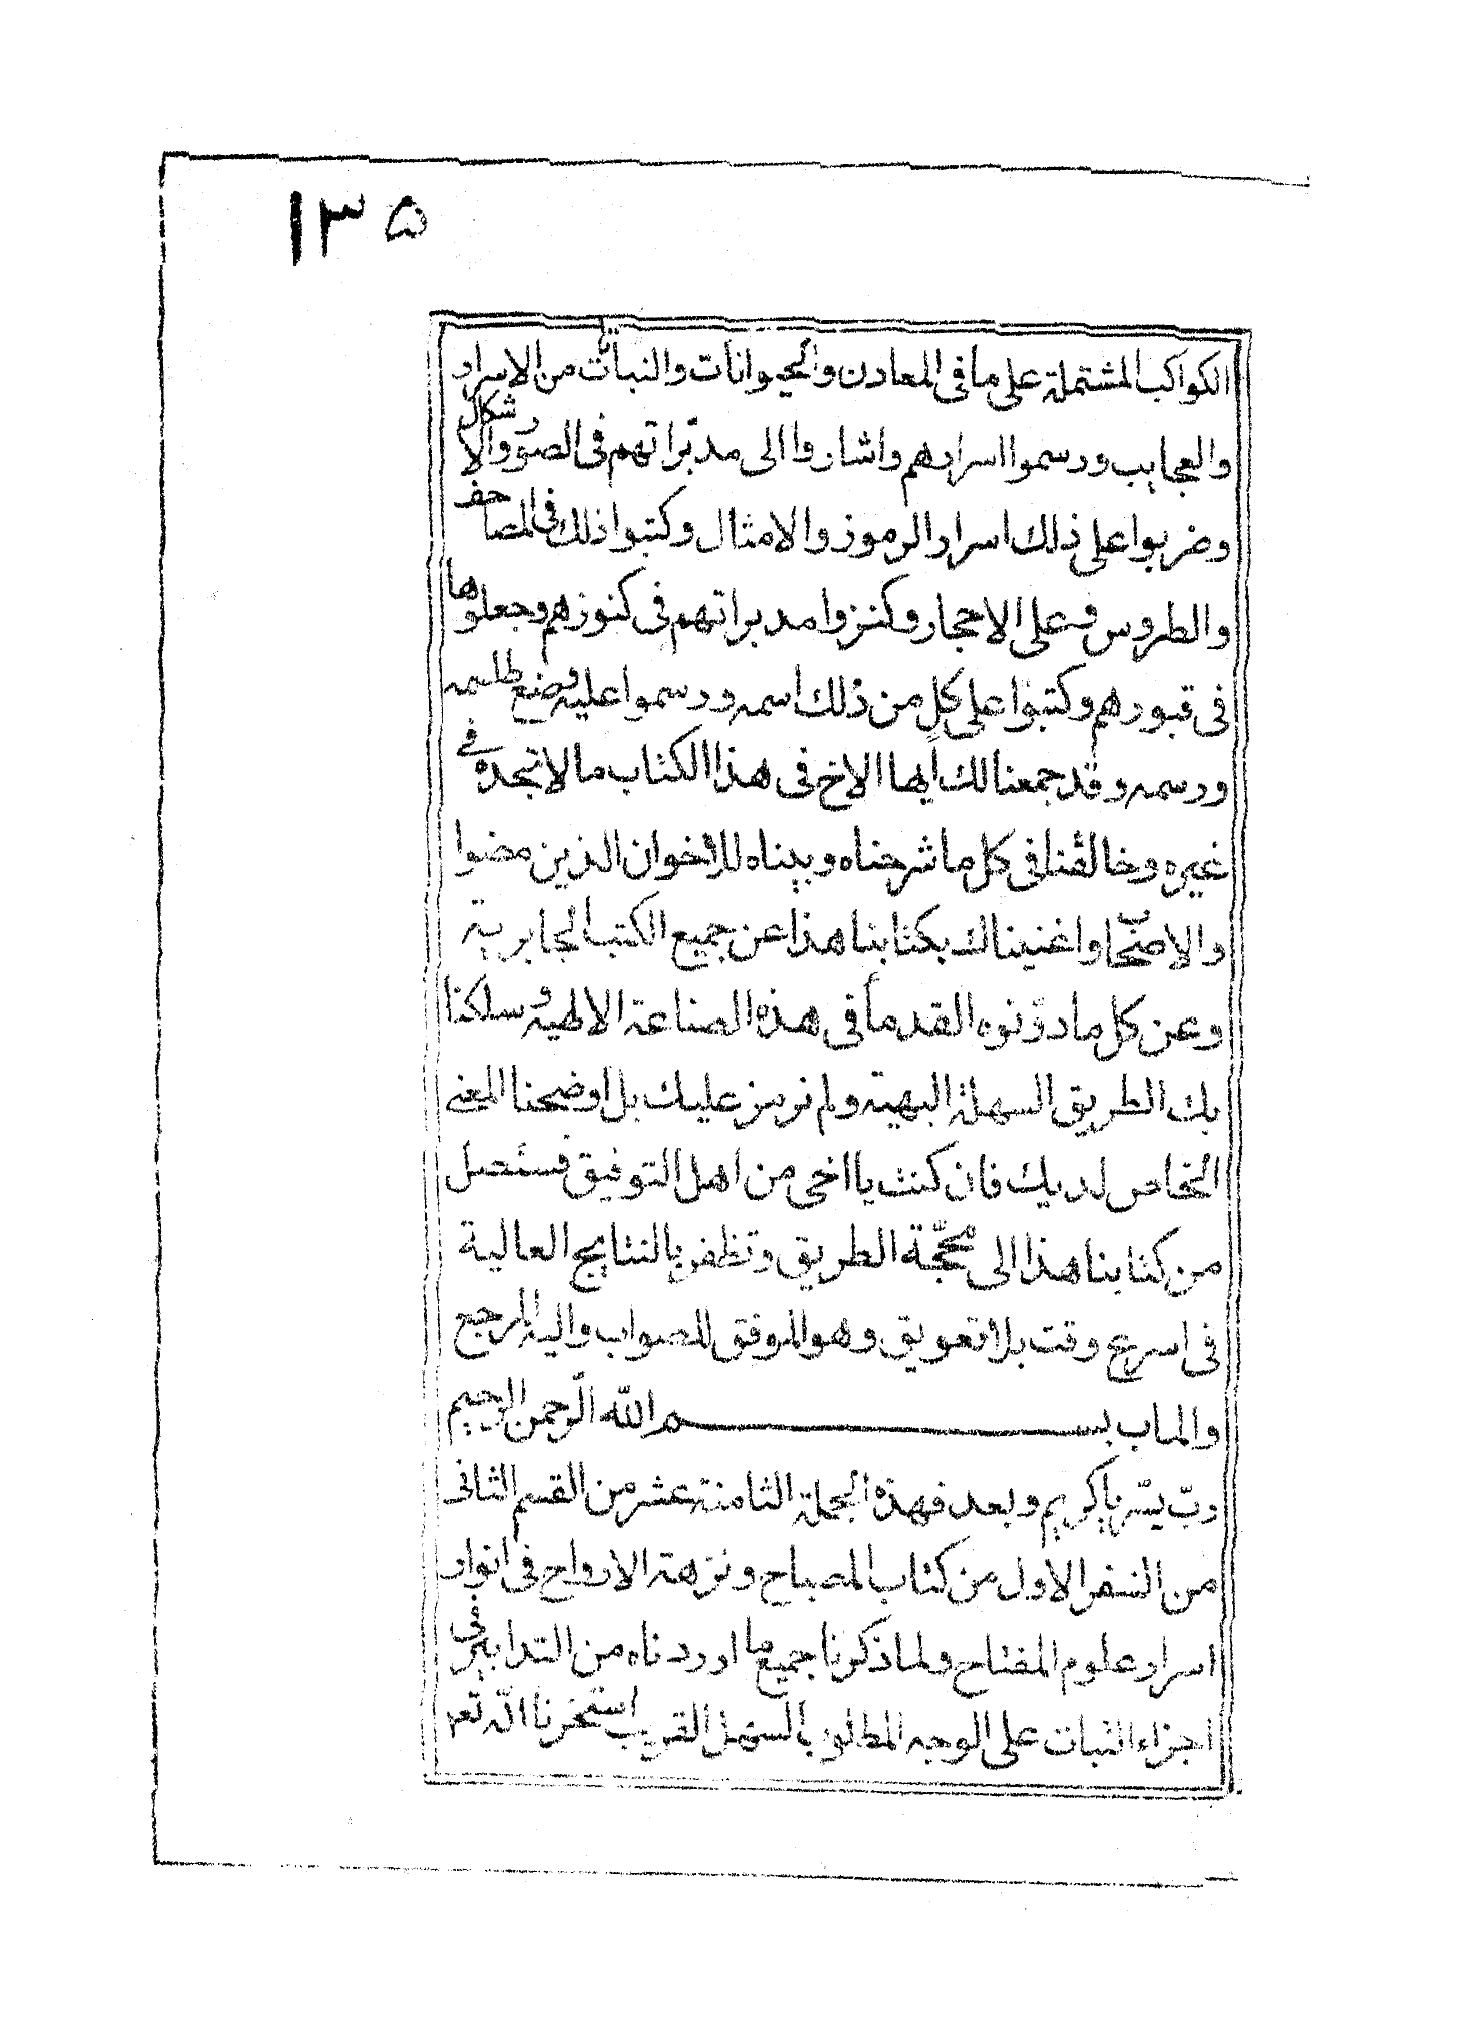 ١٣٥
الكواكب المشتملة على ما فى المعادن والحيوانات والنباتات من الاسرار
والعجايب ورسموا اسرارهم واشاروا الى مدبّراتهم فى الصور والاشكال
وضربوا على ذلك اسرار الرموز والامثال وكتبوا ذلك فى المصاحف
والطروس وعلى الاحجار وكنزوا مدبراتهم فى كنوزهم وجعلوها
فى قبورهم وكتبوا على كلٍ من ذلك اسمه ورسموا عليه وضع طلسمه
ورسمه وقد جمعنا لك ايها الاخ فى هذا الكتاب ما لا تجده فى
غيره وخالفنا فى كل ما شرحناه وبيناه للاخوان الذين مضوا
والاصحاب واغنيناك بكتابنا هذا عن جميع الكتب الجابرية
وعن كل ما دوّنوه القدماء فى هذه الصناعة الالهية وسلكنا
بك الطريق السهلة البهية ولم نرمز عليك بل اوضحنا المعنى
الخاص لديك فان كنت يا اخى من اهل التوفيق فستصل
من كتابنا هذا الى محجّة الطريق وتظفر بالنتايج العالية
فى اسرع وقت بلا تعويق وهو الموفق للصواب واليه المرجع
والماب بســـم الله الرّحمن الرحيم
ربّ يسّر يا كريم وبعد فهذه الجملة الثامنة عشر من القسم الثانى
من السفر الاول من كتاب المصباح ونزهة الارواح فى انوار
اسرار علوم المفتاح ولما ذكرنا جميع ما اوردناه من التدابير فى
اجزاء النبات على الوجه المطلوب السهل القريب استخرنا الله تعـ